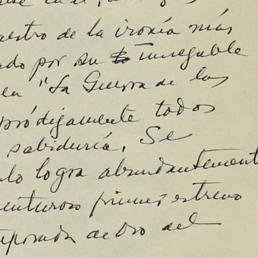 estro de la ironía más
ado por su innegable
en "La Guerra de las
pródigamente todos
sabiduría. Se
lo logra abundantement
enturoso primer estreno
mporada de Oro del